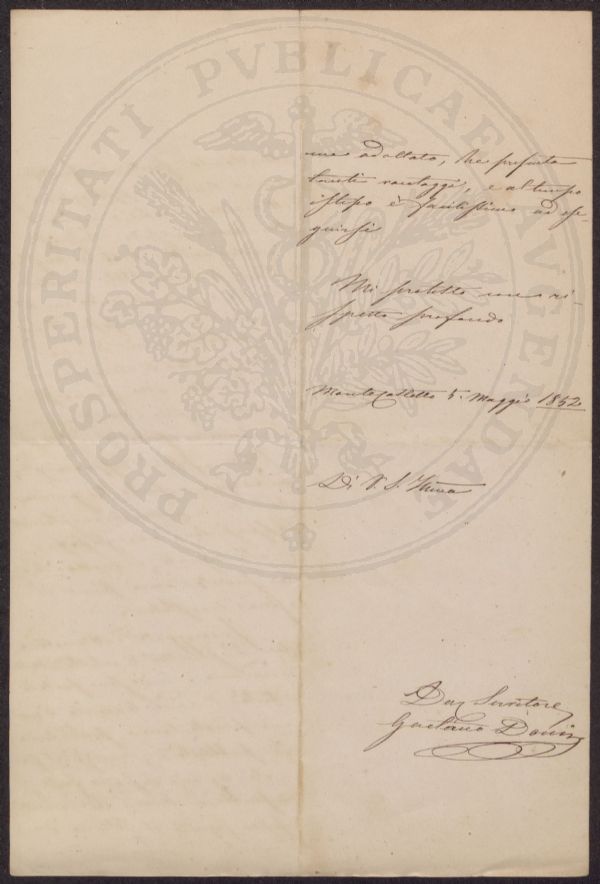 PROSPERITATI PVBLICAE AVGENDAE
adottato, che presenta
tanti vantaggi, e al tempo
istesso è facilissimo ad ese-
guirsi
Mi protesto con ri-
spetto profondo
5. Maggio 1852
Di V. S. Illma
Servitore
Gaetano